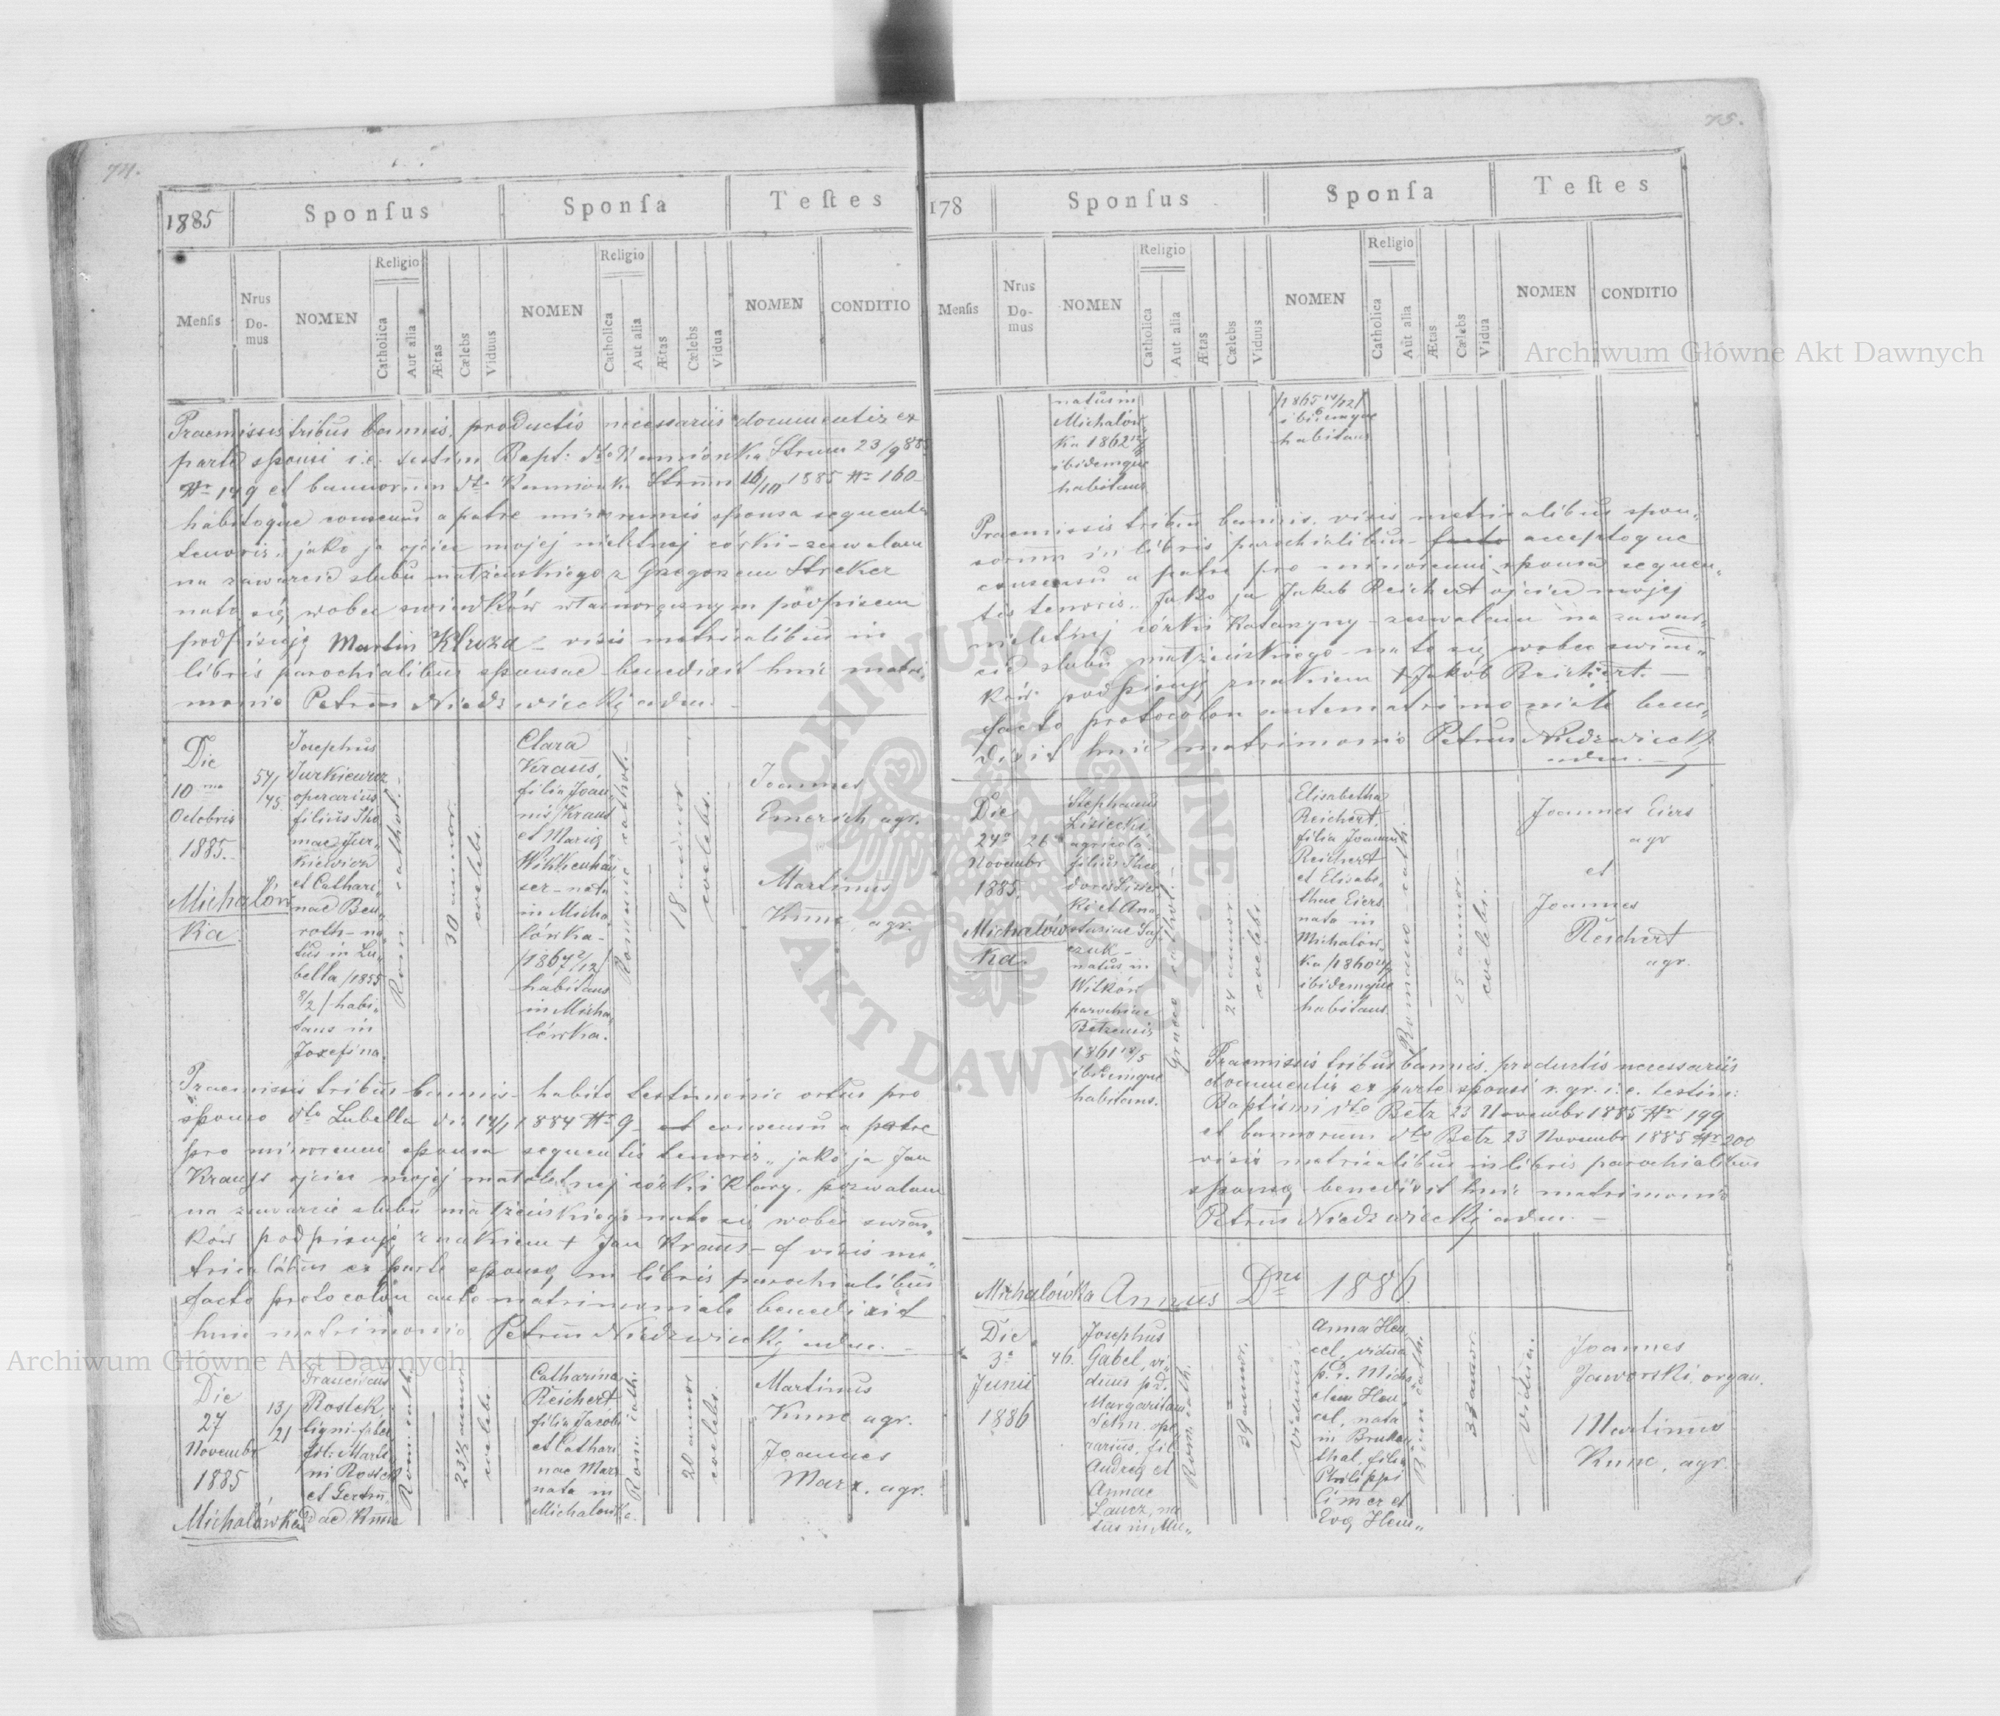 74.
1885
Sponſus
Sponſa
Teſtes
Menſis
Nrus Do- mus
NOMEN
Religio
Catholica
Aut alia
Ætas
Cælebs
Viduus
NOMEN
Religio
Catholica
Aut alia
Ætas
Cælebs
Vidua
NOMEN
CONDITIO
Praemissis tribus bannis, productis necessariis documentis ex
parte sponsi i.e. testim Bapt: dto Kamionka Strum 23/9 885
Nr 149 et bannorum dto Kamionka Strum 16/10 1885 Nr 160
habitoque consensu a patre minorennis sponsa sequentis
tenoris: jako ja ojciec mojej nieletniej córki zezwalam
na zawarcie ślubu małżeńskiego z Grzegorzem Streker
na to się wobec świadków własnoręcznym podpisem
podpisuję Martin Kluza – visis metricalibus in
libris parochialibus sponsae benedixit huic matri,
monio Petrus Niedzwiecki adm. –
Die
10ma
Octobris
1885.
Michalów
ka
57/
/45
Josephus
Jurkiewicz
operarius
filius Tho
mae Jur„
kiewicz
et Cathari
nae Ben„
roth – na
tus in Lu„
bella /1855
8/2/ habi„
tans in
Josefina.
Rom cathol.
30 annor.
coelebs.
Clara
Kraus,
filia Joan
nis Kraus
et Maria
nata
in Micha„
lówka –
habitans
in Micha„
lówka.
Romanae cathol.
18 annor
coelebs.
Joannes
Emerich agr.
Martinus
Kunc, agr.
Praemissis tribus bannis – habito testimonio ortus pro
sponso dto Lubella die 14/1 1884 Nr 9 – et consensu a patre
pro minorenni sponsa sequentis tenoris „jako ja Jan
Krauss ojciec mojej małoletniej córki Klary, pozwalam
na zawarcie ślubu małżeńskiego na to się wobec świad„
ków podpisuję znakiem + Jan Kraus – visis me„
tricalibus ex parte sponsae in libris parochialibus
facto protocolon antematrimoniale benedixit
huic matrimonio Petrus Niedzwiecki adm. –
Die
27
Novembr
1885
Michalówka
13/
/21
Franciscus
Rostek
ligni-faber
fil: Marti
ni Rostek
et Gertru
dae Kunc
Rom. cath.
23½ annor
coelebs.
Catharina
Reichert
filia Jacobi
et Cathari
nae Marx
nata in
Michalówka.
Rom. cath.
20 annor
coelebs.
Martinus
Kunc agr.
Joannes
Marx. agr.
75.
178
Sponſus
Sponſa
Teſtes
Menſis
Nrus Do- mus
NOMEN
Religio
Catholica
Aut alia
Ætas
Cælebs
Viduus
NOMEN
Religio
Catholica
Aut alia
Ætas
Cælebs
Vidua
NOMEN
CONDITIO
natus in
Michalów
ka 1862
ibidemque
habitans
ibidemque
habitans
Praemissis tribus bannis, visis metricalibus spon„
sorum in libris parochialibus – facto acceptoque
consensu a patre pro minorenni sponsa sequen„
tis tenoris „Jako ja Jakub Reichert ojciec mojej
nieletniej córki Katarzyny – zezwalam na zawar„
cie ślubu małżeńskiego – na to się wobec świad„
ków podpisuję znakiem + Jakób Reichert. –
facto protocolon antematrimoniale bene„
dixit huic matrimonio Petrus Niedzwiecki
adm. –
Die
24a
Novembr
1885
Michalów
ka
26
Stephanus
Lisiecki
agricola
filius Theo
dori Lisiec
ki et Ana
stasiae
natus in
Witków
parochiae
Betzensis
1861 18/5
ibidemque
habitans.
Graeco cathol. –
24 annor
coelebs
Elisabetha
Reichert,
filia Joannis
Reichert
et Elisabe„
thae Eiers
nata in
Michalów„
ka
ibidemque
habitans.
Romano – cath. –
25 annor
coelebs.
Joannes Eiers
agr
et
Joannes
Reichert
agr.
Praemissis tribus bannis, productis necessariis
documentis ex parte sponsi r. gr. i.e. testim:
Baptismi dto Betz 23 Novembr 1885 Nr 199
et bannorum dto Betz 23 Novembr 1885 Nr 200
visis metricalibus in libris parochialibus
sponsae benedixit huic matrimonio
Petrus Niedzwiecki adm. –
Michalówka Annus Dni 1886.
Die
3a
Junii
1886
46.
Josephus
Gabel, vi„
duus p.d.
Margaritam
fil.
Andreae et
Annae
na
tus in
Rom. cath.
39 annor.
viduus.
Anna Hen
cel, vidua
p. d. Micha
elem Hen„
cel, nata
in Brucken
thal, filia
Philippi
Cimer et
Eva Hen„
Rom cath.
38 annor.
vidua.
Joannes
Jaworski, organ.
Martinus
Kunc, agr.
Archiwum Główne Akt Dawnych
Archiwum Główne Akt Dawnych
ARCHIWUM GŁÓWNE · AKT DAWNYCH ·